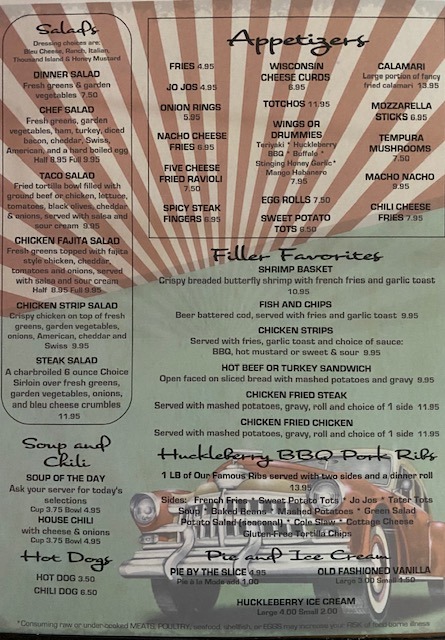 Salads
Dressing choices are:
Bleu Cheese, Ranch, Italian,
Thousand Island & Honey Mustard
DINNER SALAD
Fresh greens & garden
vegetables 7.50
CHEF SALAD
Fresh greens, garden
vegetables, ham, turkey, diced
bacon, cheddar, Swiss,
American, and a hard boiled egg
Half 8.95 Full 9.95
TACO SALAD
Fried tortilla bowl filled with
ground beef or chicken, lettuce,
tomatoes, black olives, cheddar
& onions, served with salsa and
sour cream 9.95
CHICKEN FAJITA SALAD
Fresh greens topped with fajita
style chicken, cheddar,
tomatoes and onions, served
with salsa and sour cream
Half 8.95 Full 9.95
CHICKEN STRIP SALAD
Crispy chicken on top of fresh
greens, garden vegetables,
onions, American, cheddar and
Swiss 9.95
STEAK SALAD
A charbroiled 6 ounce Choice
Sirloin over fresh greens,
garden vegetables, onions,
and bleu cheese crumbles
11.95
Soup and
Chili
SOUP OF THE DAY
Ask your server for today's
selections
Cup 3.75 Bowl 4.95
HOUSE CHILI
with cheese & onions
Cup 3.75 Bowl 4.95
Hot Dogs
HOT DOG 3.50
CHILI DOG 6.50
Appetizers
FRIES 4.95
JO JOS 4.95
ONION RINGS
5.95
NACHO CHEESE
FRIES 6.95
FIVE CHEESE
FRIED RAVIOLI
7.50
SPICY STEAK
FINGERS 6.95
WISCONSIN
CHEESE CURDS
6.95
TOTCHOS 11.95
WINGS OR
DRUMMIES
Teriyaki * Huckleberry
BBQ * Buffalo *
Stinging Honey Garlic *
Mango Habanero
7.95
EGG ROLLS 7.50
SWEET POTATO
TOTS 6.50
CALAMARI
Large portion of fancy
fried calamari 13.95
MOZZARELLA
STICKS 6.95
TEMPURA
MUSHROOMS
7.50
MACHO NACHO
9.95
CHILI CHEESE
FRIES 7.95
Filler Favorites
SHRIMP BASKET
Crispy breaded butterfly shrimp with french fries and garlic toast
10.95
FISH AND CHIPS
Beer battered cod, served with fries and garlic toast 9.95
CHICKEN STRIPS
Served with fries, garlic toast and choice of sauce:
BBQ, hot mustard or sweet & sour 9.95
HOT BEEF OR TURKEY SANDWICH
Open faced on sliced bread with mashed potatoes and gravy 9.95
CHICKEN FRIED STEAK
Served with mashed potatoes, gravy, roll and choice of 1 side 11.95
CHICKEN FRIED CHICKEN
Served with mashed potatoes, gravy, roll and choice of 1 side 11.95
Huckleberry BBQ Pork Ribs
1 LB of Our Famous Ribs served with two sides and a dinner roll
13.95
Sides: French Fries * Sweet Potato Tots * Jo Jos * Tater Tots
Soup * Baked Beans * Mashed Potatoes * Green Salad
Potato Salad (seasonal) * Cole Slaw * Cottage Cheese
Gluten-Free Tortilla Chips
Pie and Ice Cream
PIE BY THE SLICE 4.95
Pie a la Mode add 1.00
OLD FASHIONED VANILLA
Large 3.00 Small 1.50
HUCKLEBERRY ICE CREAM
Large 4.00 Small 2.00
*Consuming raw or under-cooked MEATS, POULTRY, seafood, shellfish, or EGGS may increase your RISK of food borne illness